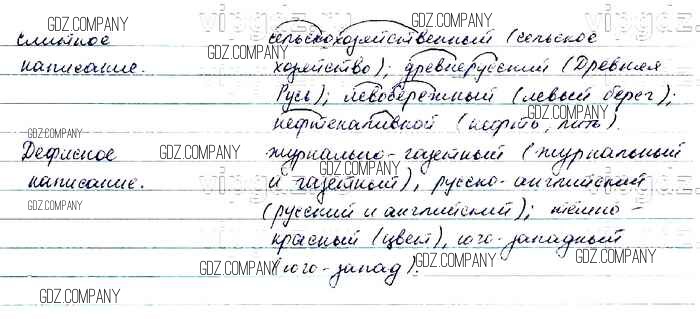 слитное сельскохозяйственный (сельское
написание. хозяйство); древнерусский (Древняя
Русь); левобережный (левый берег);
нефтеналивной (нефть, лить).
Дефисное журнально-газетный (журнальный
написание. и газетный), русско-английский
(русский и английский); тёмно-
красный (цвет), юго-западный
(юго-запад).
GDZ.COMPANY
GDZ.COMPANY
GDZ.COMPANY
GDZ.COMPANY
GDZ.COMPANY
GDZ.COMPANY
GDZ.COMPANY
GDZ.COMPANY
GDZ.COMPANY
GDZ.COMPANY
GDZ.COMPANY
GDZ.COMPANY
GDZ.COMPANY
GDZ.COMPANY